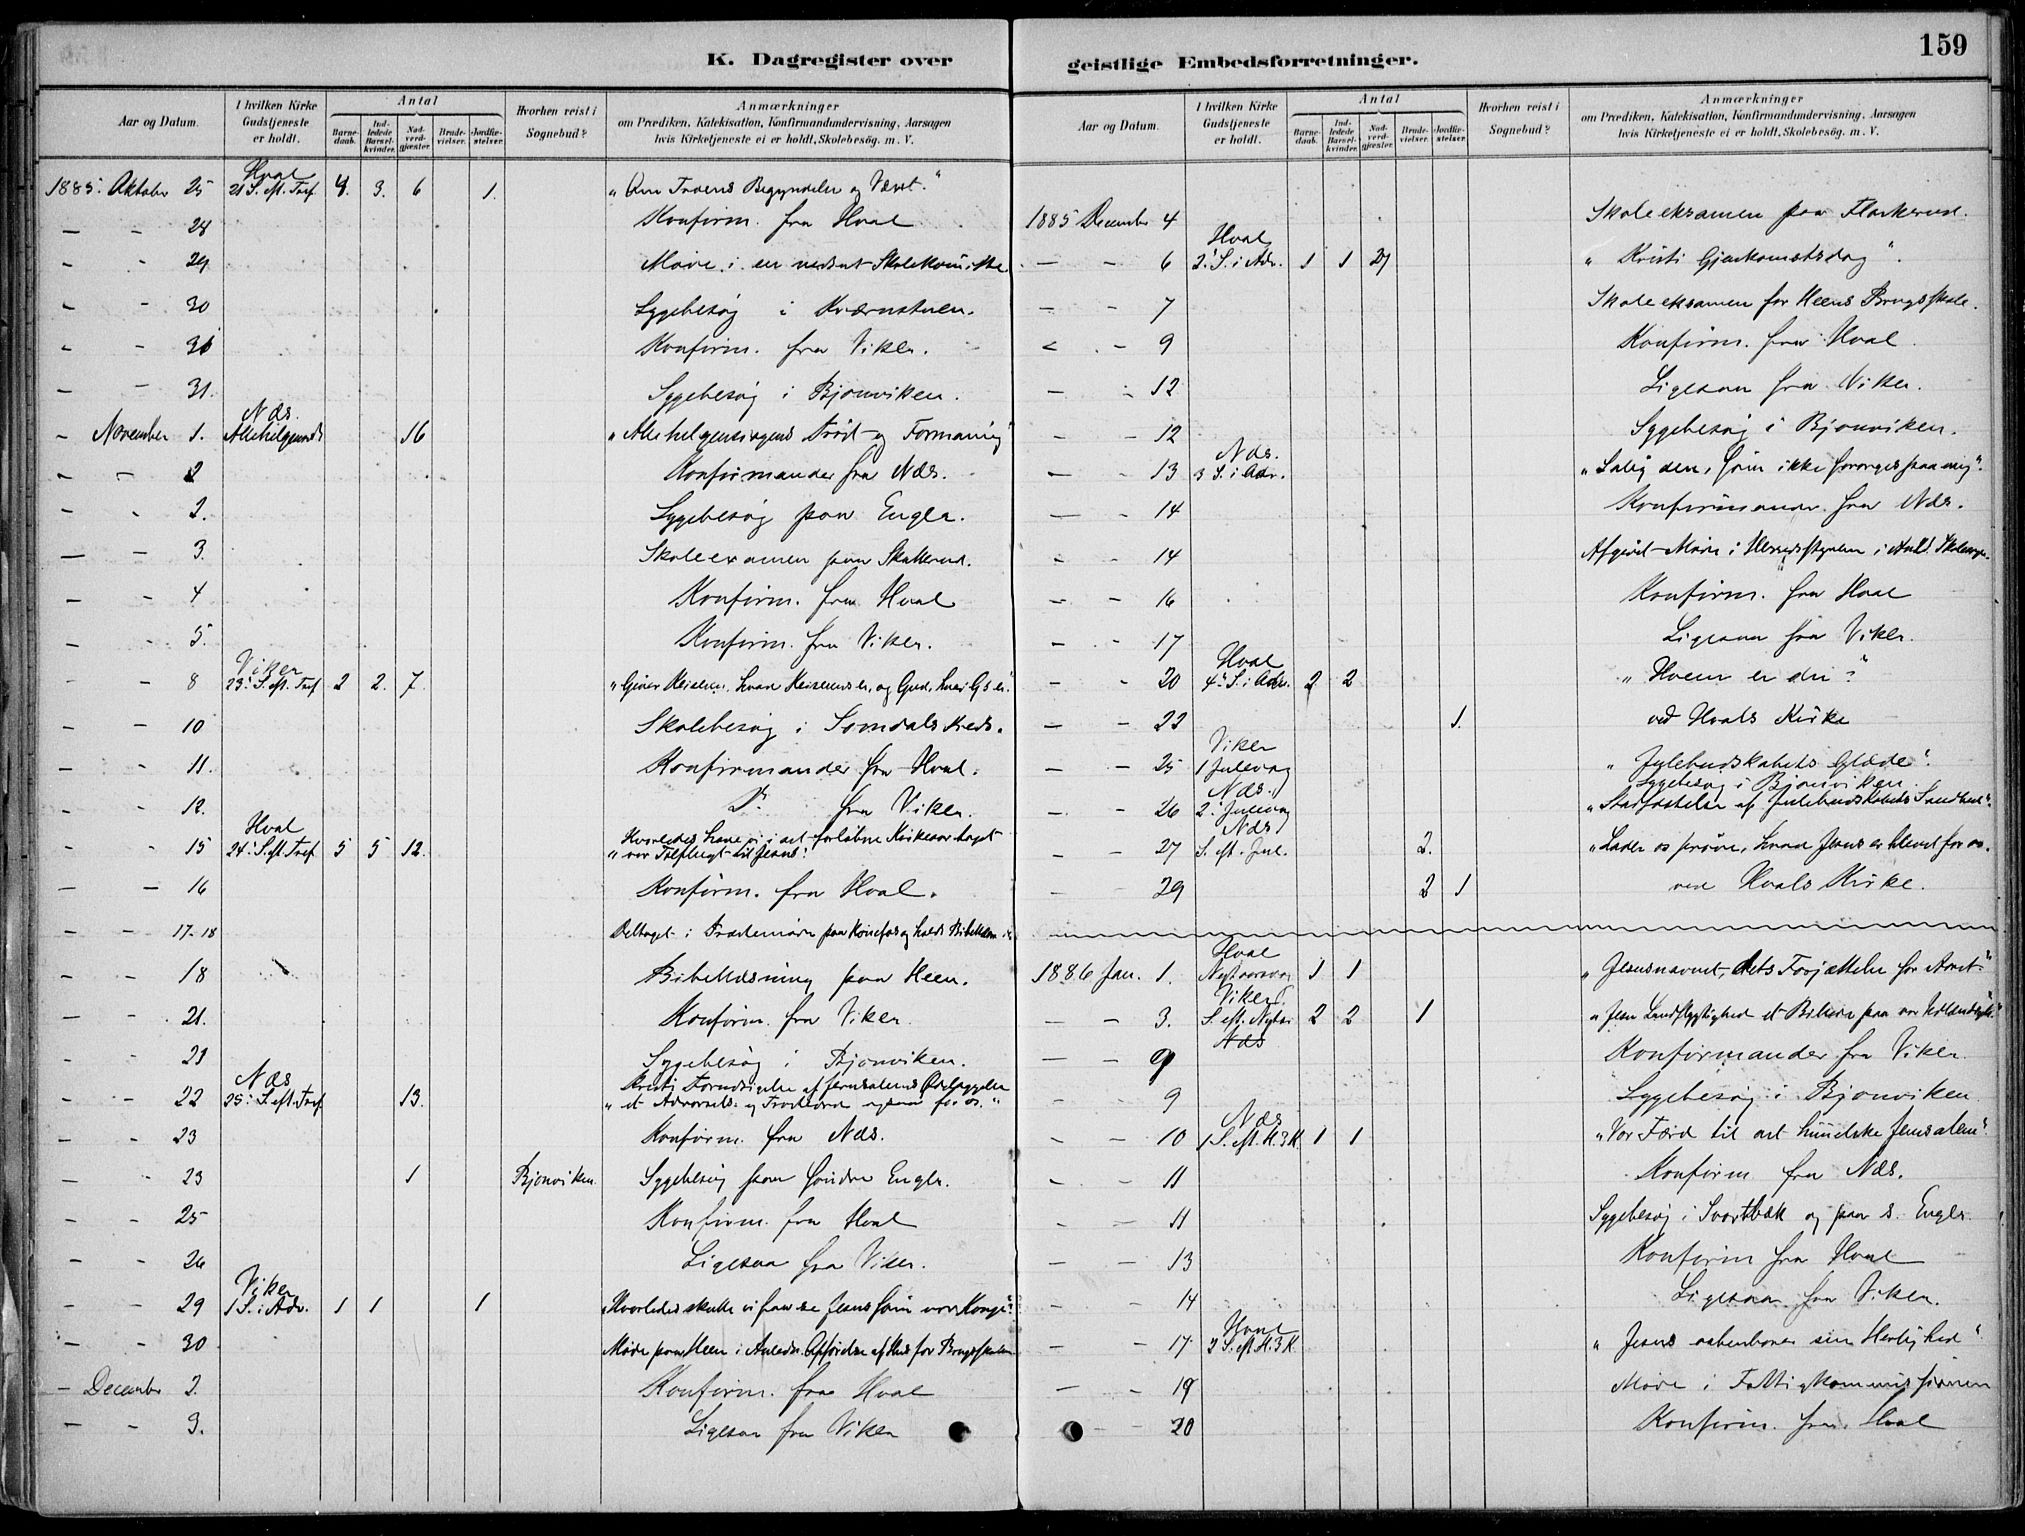 K. Dagregister over
Aar og Datum.
I hvilken Kirke Gudstjeneste er holdt.
Antal
Barne-daab.
Ind-ledede Barsel-kvinder.
Nad-verd-gjæster.
Brude-vielser.
Jordfæ-stelser.
Hvorhen reist i Sognebud?
Anmærkninger
om Prædiken, Katekisation, Konfirmandundervisning, Aarsagen
hvis Kirketjeneste ei er holdt, Skolebesøg. m. V.
1885. Oktober 25 Hval 21 S. eft. Tref. 4. 3. 6 1. "Om Troens Begyndelse og Væxt."
— — 28 Konfirm. fra Hval
- - 29 Møde i en nedsat Skolekomitte
- - 30 Sygebesøg i Kværnstuen.
- - 31 Konfirm. fra Viker.
- - 31. Sygebesøg i Bjonviken.
- November 1. Næs. Allehelgensd. 16 "Allehelgensdagens Trøst og Formaning"
- - 2 Konfirmander fra Næs.
- - 2. Sygebesøg paa Engla.
— - 3. Skoleexamen paa Skallerud.
— - 4 Konfirm. fra Hval
— - 5. Konfirm. fra Viker.
- - 8 Viker 23. S. eft. Tref 2 2. 7. "Giver Keiseren, hvad Keiserens er, og Gud, hvad G's er."
— - 10 Skolebesøg i Somdals Kreds.
— - 11. Konfirmander fra Hval.
- - 12. Do fra Viker.
- - 15 Hval 24. S. eft. Tref 5 5 12. Hvorledes have vi i det forløbne Kirkeaar taget
"vor Tilflugt til Jesus?"
— — 16 Konfirm. fra Hval.
— - 17-18 Deltaget i Prædiemøde paa Hønefos og holdt Bibellæsn.
- - 18 Bibellæsning paa Heen.
— - 21. Konfirm. fra Viker.
— - 21 Sygebesøg i Bjonviken.
- - 22 Næs 25. S. eft. Tref 13. Kristi Forudsigelse af Jerusalems Ødelæggelse
"et Advarsels- og Trøsteord ogsaa for os."
- - 23 Konfirm. fra Næs.
— - 23 1 Bjonviken Sygebesøg paa søndre Engla.
- - 25 Konfirm. fra Hval
- - 26 Ligesaa fra Viker.
- - 29 Viker 1 S. i Adv. 1 1 1 "Hvorledes skulle vi faa se Jesus som vor Konge?"
— - 30 Møde paa Heen i Anledn. Opførelse af Hus for Brugsskolen
- December 2. Konfirm. fra Hval
— - 3. Ligesaa fra Viker
geistlige Embedsforretninger.
159
Aar og Datum.
I hvilken Kirke Gudstjeneste er holdt.
Antal
Barne-daab.
Ind-ledede Barsel-kvinder.
Nad-verd-gjæster.
Brude-vielser.
Jordfæ-stelser.
Hvorhen reist i Sognebud?
Anmærkninger
om Prædiken, Katekisation, Konfirmandundervisning, Aarsagen
hvis Kirketjeneste ei er holdt, Skolebesøg. m. V.
1885 December 4 Skoleeksamen paa Flaskerud.
— - 6 Hval 2. S. i Adv. 1 1 21 "Kristi Gjenkomstsdag".
— - 7 Skoleeksamen for Heens Brugsskole.
- - 9 Konfirm. fra Hval
— - 12 Ligesaa fra Viker.
— - 12 Sygebesøg i Bjonviken.
— - 13 Næs. 3 S. i Adv. "Salig den, som ikke forarges paa mig".
— - 14 Konfirmander fra Næs.
- - 14 Afgivet Møde i Herredsstyrelsen i Anl.
— - 16 Konfirm. fra Hval
— - 17 Ligesaa fra Viker.
- - 20 Hval 4. S. i Adv. 2 2 "Hvem er du?"
— - 22 1. ved Hvals Kirke
— - 25 Viker 1 Juledag "Julebudskabets Glæde".
Sygebesøg i Bjonviken
— - 26 Næs. 2. Juledag "Stadfæstelse af Julebudskabets Sandhed".
- - 27 Næs S. eft. Jul. 2. "Lader os prøve, hvad Jesus er blevet for os.
- - 29 2 1 ved Hvals Kirke.
1886 Jan. 1. Hval Nytaarsdag 1 1 "Jesusnavnet, dets Forjættelse for Aaret."
— - 3. Viker S. eft. Nytaar 2 2 1 "Jesu Landflygtighed et Billede paa vor
— - 9 Næs Konfirmander fra Viker.
- - 9 Sygebesøg i Bjonviken
- - 10 Næs 1 S. eft. H. 3 K 1 1 "Vor Færd til det himmelske Jerusalem".
- - 11 Konfirm fra Næs.
- - 11 Sygebesøg i Svartbæk og paa s. Engla.
— - 13 Konfirm fra Hval
- - 14 Ligesaa fra Viker.
- 17 Hval 2 S. eft H. 3 K "Jesus aabenbarer sin Herlighed".
— - 19 Møde i Fattigkommissionen
- 20 Konfirm. fra Hval